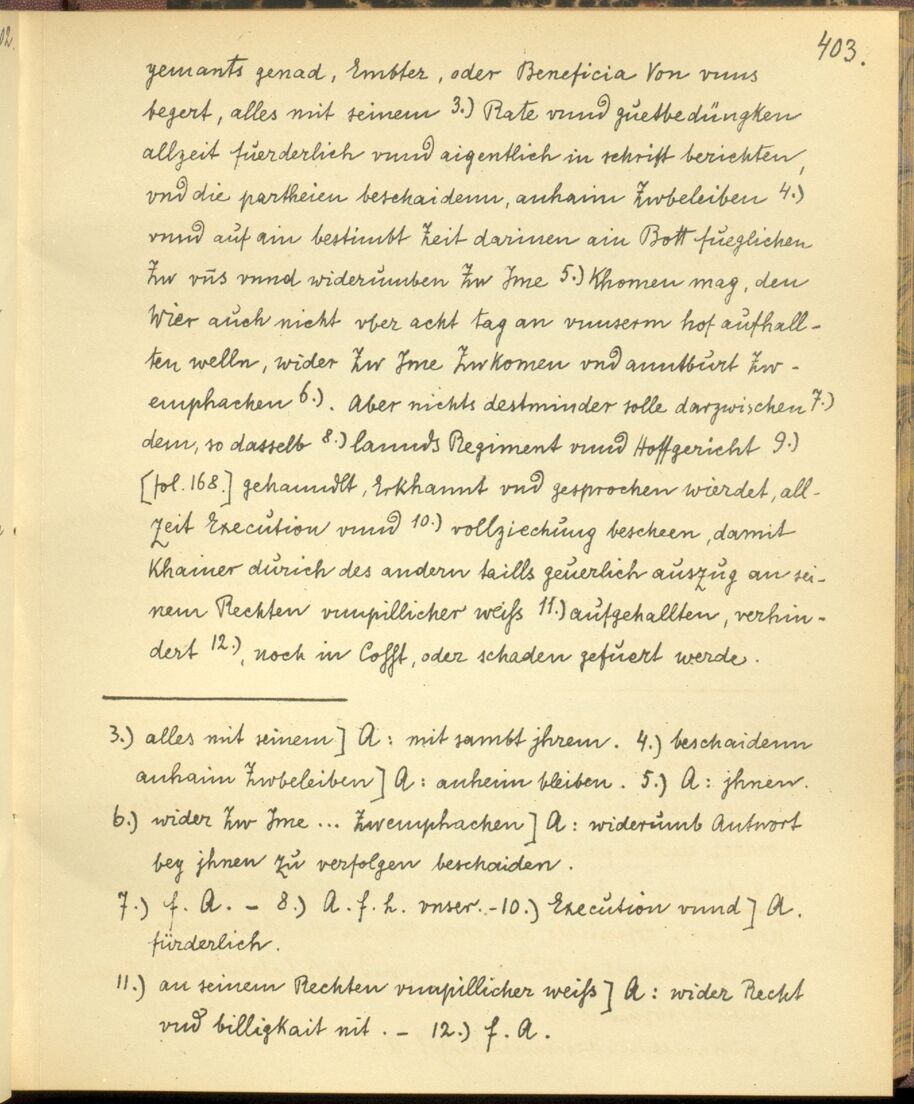 403.
yemants genad, Embter, oder Beneficia Von vnns
begert, alles mit seinem 3.) Rate vnnd guetbedüngken
allzeit fuerderlich vnnd aigentlich in schrift berichten,
vnd die partheien beschaidenn, anhaim Zwbeleiben 4.)
vnnd auf ain bestimbt Zeit darinen ain Bott fueglichen
Zw vñs vnnd widerumben Zw Jme 5.) Khomen mag, den
Wier auch nicht vber acht tag an vnnserm hof aufhall-
ten welln, wider Zw Jme Zwkomen vnd anntburt Zw-
emphachen 6.). Aber nichts destminder solle darzwischen 7.)
dem, so dasselb 8.) lannds Regiment vnnd Hoffgericht 9.)
[fol. 168.] gehanndlt, Erkhannt vnd gesprochen wierdet, all-
Zeit Execution vnnd 10.) vollziechung bescheen, damit
Khainer durich des andern taills geuerlich auszug an sei-
nem Rechten vnnpillicher weiss 11.) aufgehallten, verhin-
dert 12.), noch in Cosst, oder schaden gefuert werde.
3.) alles mit seinem] A: mit sambt jhrem. 4.) beschaidenn
anhaim Zwbeleiben] A: anheim bleiben. 5.) A: jhnen.
6.) wider Zw Jme ... Zwemphachen] A: widerumb Antwort
bey jhnen zu verfolgen beschaiden.
7.) f. A. - 8.) A. f. h. vnser. - 10.) Execution vnnd] A.
fürderlich.
11.) an seinem Rechten vnnpillicher weiss] A: wider Recht
vnd billigkait nit. - 12.) f. A.